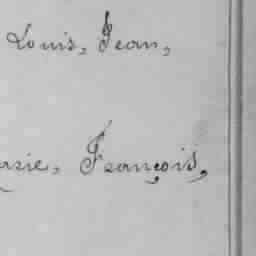 Louis, Jean,
arie, François,